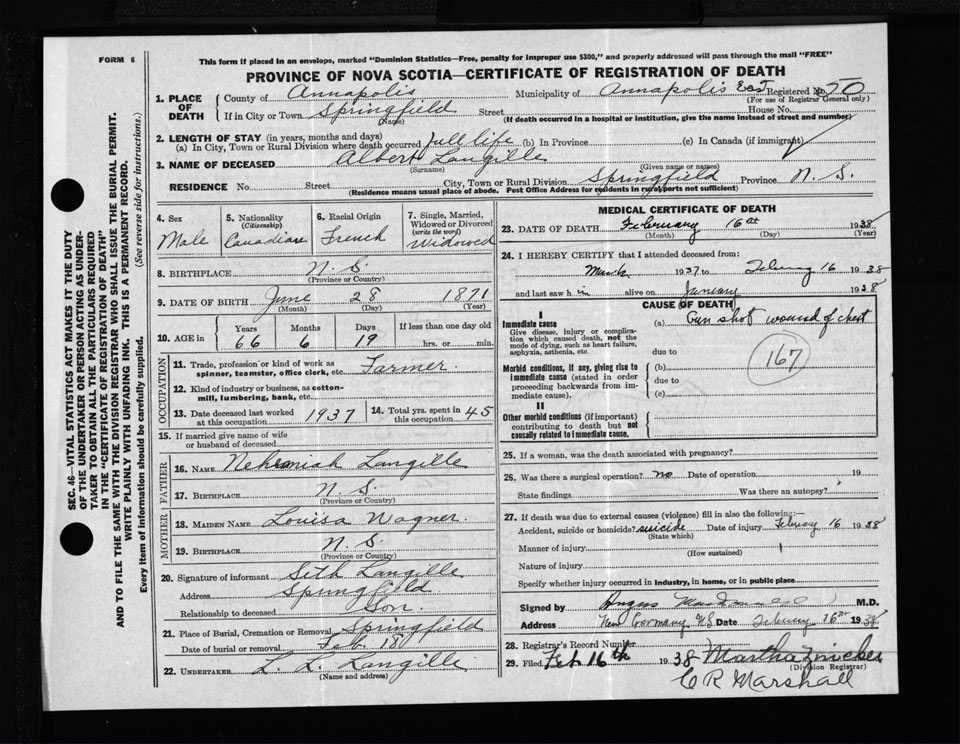 FORM 6
This form if placed in an envelope, marked "Dominion Statistics—Free, penalty for improper use $300," and properly addressed will pass through the mail "FREE"
PROVINCE OF NOVA SCOTIA—CERTIFICATE OF REGISTRATION OF DEATH
1. PLACE OF DEATH
County of Annapolis Municipality of Annapolis East Registered No. 50
(For use of Registrar General only)
If in City or Town Springfield Street House No.
(Name) (If death occurred in a hospital or institution, give the name instead of street and number)
2. LENGTH OF STAY (in years, months and days)
(a) In City, Town or Rural Division where death occurred full life (b) In Province (c) In Canada (if immigrant)
3. NAME OF DECEASED Albert Langille
(Surname) (Given name or names)
RESIDENCE No. Street City, Town or Rural Division Springfield Province N. S.
(Residence means usual place of abode. Post Office Address for residents in rural parts not sufficient)
4. Sex Male
5. Nationality (Citizenship) Canadian
6. Racial Origin French
7. Single, Married, Widowed or Divorced (write the word) Widowed
8. BIRTHPLACE N. S.
(Province or Country)
9. DATE OF BIRTH June 28 1871
(Month) (Day) (Year)
10. AGE in Years 66 Months 6 Days 19 If less than one day old hrs. or min.
OCCUPATION
11. Trade, profession or kind of work as spinner, teamster, office clerk, etc. Farmer
12. Kind of industry or business, as cotton-mill, lumbering, bank, etc.
13. Date deceased last worked at this occupation 1937
14. Total yrs. spent in this occupation 45
15. If married give name of wife or husband of deceased
FATHER
16. NAME Nehemiah Langille
17. BIRTHPLACE N. S.
(Province or Country)
MOTHER
18. MAIDEN NAME Louisa Wagner.
19. BIRTHPLACE N. S.
(Province or Country)
20. Signature of informant Seth Langille
Address Springfield
Relationship to deceased Son.
21. Place of Burial, Cremation or Removal Springfield
Date of burial or removal Feb. 18
22. UNDERTAKER L. L. Langille
(Name and address)
MEDICAL CERTIFICATE OF DEATH
23. DATE OF DEATH February 16th 1938
(Month) (Day) (Year)
24. I HEREBY CERTIFY that I attended deceased from:
March 1937 to February 16 1938
and last saw h im alive on January 1938
CAUSE OF DEATH
I
Immediate cause
Give disease, injury or complication which caused death, not the mode of dying, such as heart failure, asphyxia, asthenia, etc.
(a) Gun shot wound of chest
due to
167
Morbid conditions, if any, giving rise to immediate cause (stated in order proceeding backwards from immediate cause).
(b)
due to
(c)
II
Other morbid conditions (if important) contributing to death but not causally related to immediate cause.
25. If a woman, was the death associated with pregnancy?
26. Was there a surgical operation? no Date of operation 19
State findings Was there an autopsy?
27. If death was due to external causes (violence) fill in also the following:—
Accident, suicide or homicide? suicide Date of injury February 16 1938
(State which)
Manner of injury
(How sustained)
Nature of injury
Specify whether injury occurred in industry, in home, or in public place
Signed by Angus MacDonald M.D.
Address New Germany N.S. Date February 16th 1938
28. Registrar's Record Number
29. Filed Feb. 16th 1938 Martha Zincker
(Division Registrar)
C R Marshall
SEC. 46–VITAL STATISTICS ACT MAKES IT THE DUTY
OF THE UNDERTAKER OR PERSON ACTING AS UNDER-
TAKER TO OBTAIN ALL THE PARTICULARS REQUIRED
IN THE "CERTIFICATE OF REGISTRATION OF DEATH"
AND TO FILE THE SAME WITH THE DIVISION REGISTRAR WHO SHALL ISSUE THE BURIAL PERMIT.
WRITE PLAINLY WITH UNFADING INK. THIS IS A PERMANENT RECORD.
Every item of information should be carefully supplied. (See reverse side for instructions.)